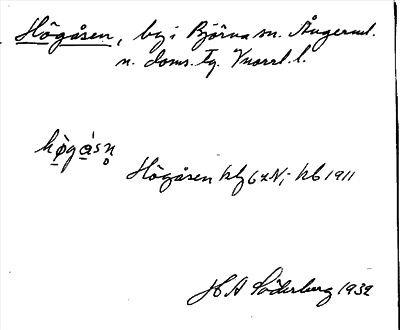 Högåsen, by i Björna sn. Ångerml.
n. doms. tg. Vnorrl. l.
hø̀gásn̥
Högåsen kbg 62 N; kb 1911
H A Söderberg 1932